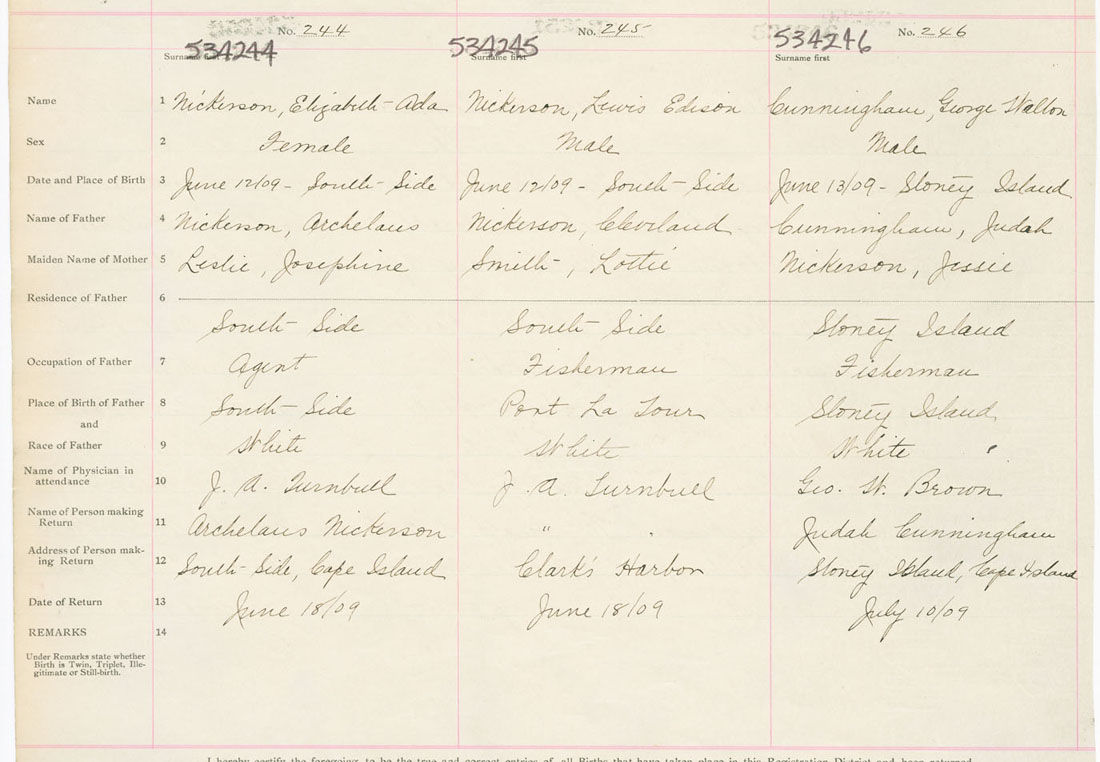 No. 244 No. 245 No. 246
534244 534245 534246
Surname first Surname first Surname first
Name 1 Nickerson, Elizabeth-Ada Nickerson, Lewis Edison Cunningham, George Walton
Sex 2 Female Male Male
Date and Place of Birth 3 June 12/09 - South-Side June 12/09 - South-Side June 13/09 - Stoney Island
Name of Father 4 Nickerson, Archelaus Nickerson, Cleveland Cunningham, Judah
Maiden Name of Mother 5 Leslie, Josephine Smith, Lottie Nickerson, Jessie
Residence of Father 6
South-Side South-Side Stoney Island
Occupation of Father 7 Agent Fisherman Fisherman
Place of Birth of Father 8 South-Side Port La Tour Stoney Island
and
Race of Father 9 White White White
Name of Physician in
attendance 10 J. A. Turnbull J. A. Turnbull Geo. W. Brown
Name of Person making
Return 11 Archelaus Nickerson " Judah Cunningham
Address of Person mak-
ing Return 12 South-Side, Cape Island Clark's Harbor Stoney Island, Cape Island
Date of Return 13 June 18/09 June 18/09 July 10/09
REMARKS 14
Under Remarks state whether
Birth is Twin, Triplet, Ille-
gitimate or Still-birth.
I hereby certify the foregoing to be the true and correct entries of all Births that have taken place in this Registration District and been returned